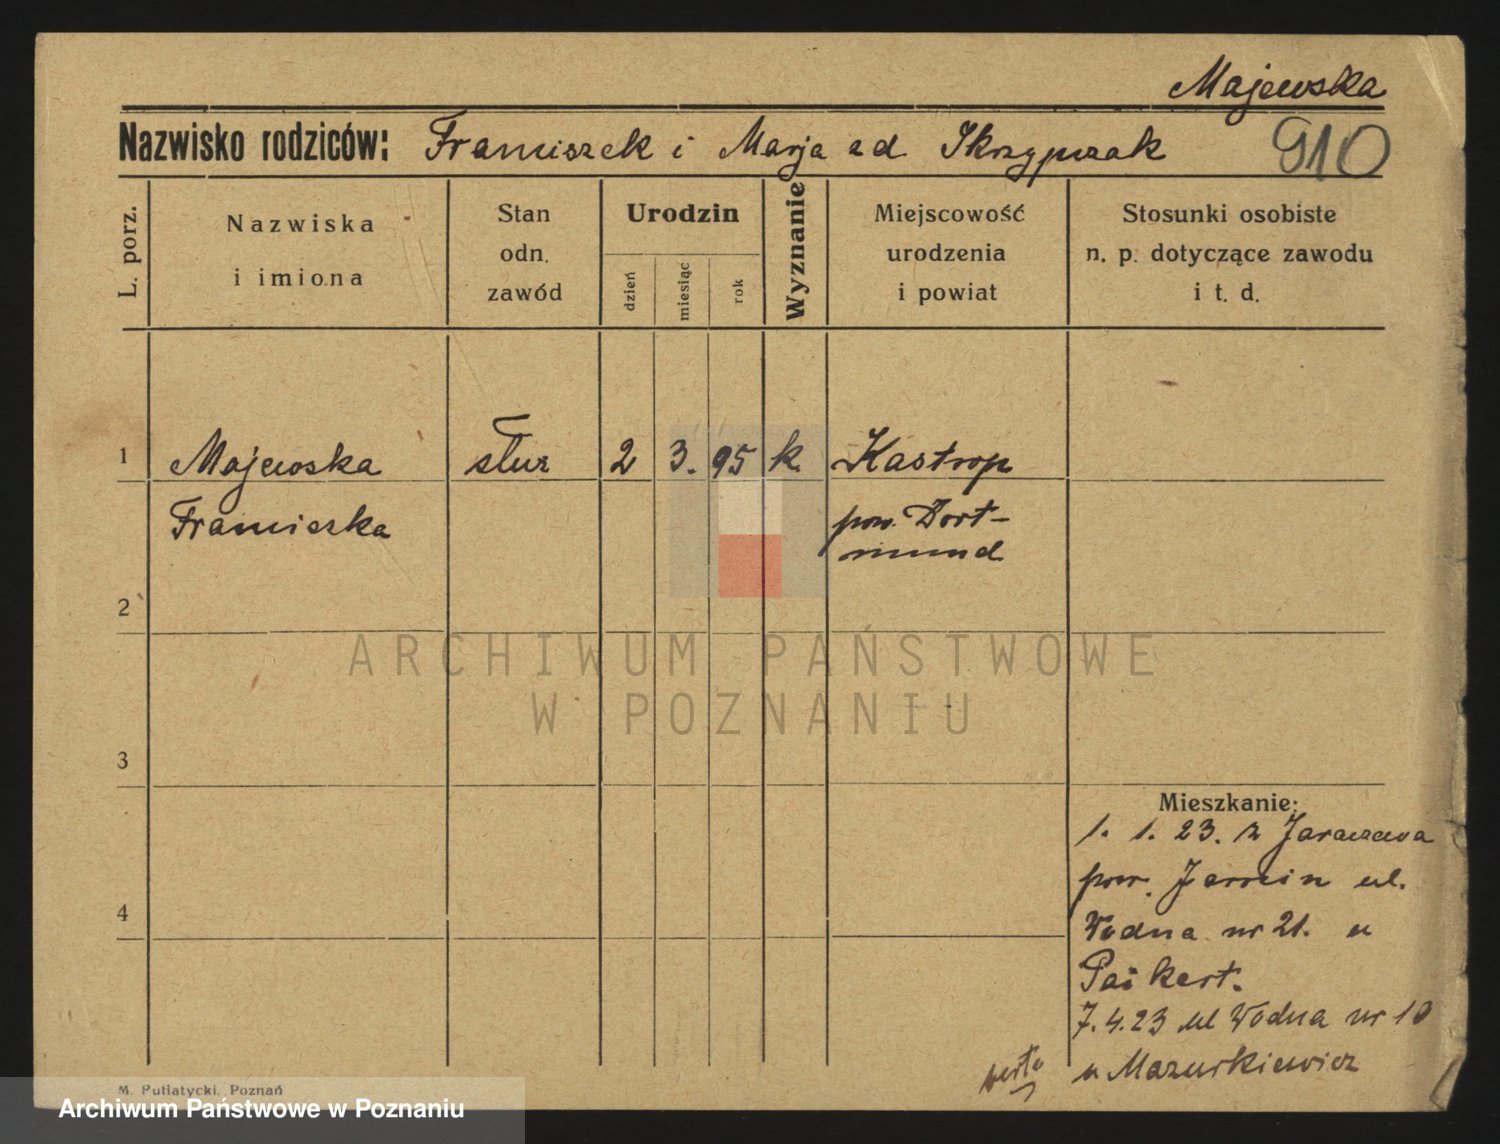 Majewska
Nazwisko rodziców: Franciszek i Marja zd Skrzypczak
910
L. porz.
Nazwiska
i imiona
Stan
odn.
zawód
Urodzin
dzień
miesiąc
rok
Wyznanie
Miejscowość
urodzenia
i powiat
Stosunki osobiste
n. p. dotyczące zawodu
i t. d.
1
Majewska
służ
2
3.
95
k.
Kastrop
Franciszka
pow. Dort-
mund
2
ARCHIWUM PAŃSTWOWE
W POZNANIU
3
Mieszkanie:
1. 1. 23. z Jaraczewa
pow. Jarocin ul.
Wodna nr 21. u
Paikert.
4
7.4.23 ul Wodna nr 10
u Mazurkiewicz
verte
M. Putiatycki, Poznań
Archiwum Państwowe w Poznaniu